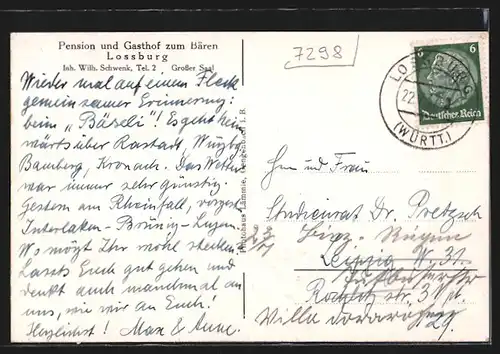 Pension und Gasthof zum Bären
Lossburg
Inh. Wilh. Schwenk, Tel. 2 Großer Saal
Wieder mal auf einem Fleck
gemeinsamer Erinnerung:
beim „Bäseli"! Es geht heim
wärts über Rastadt, Würzbg
Bamberg, Kronach. Das Wetter
war immer sehr günstig.
Gestern am Rheinfall, vorgest.
Interlaken - Brünig - Luzern.
Wo mögt Ihr wohl stecken.
Lasst's Euch gut gehen und
denkt auch manchmal an
uns, wie wir an Euch!
Herzlichst! Max & Anne.
Photohaus
7298
LOSSBURG
22.
(WÜRTT.)
6 6
Deutsches Reich
Herrn und Frau
Studienrat Dr. Pretzsch
Leipzig N. 31.
str. 31 pt.
Villa